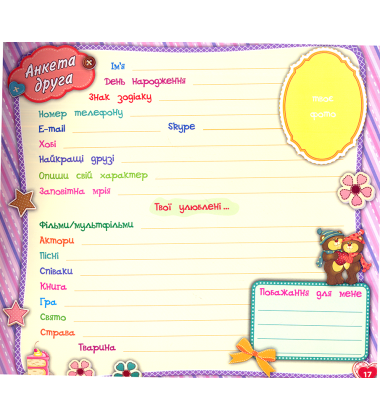 Анкета
друга
Ім'я
День Народження
Знак зодіаку
Номер телефону
E-mail Skype
Хобі
Найкращі друзі
Опиши свій характер
Заповітна мрія
Твої улюблені...
Фільми/мультфільми
Актори
Пісні
Співаки
Книга
Гра
Свято
Страва
Тварина
фото
Побажання для мене
17